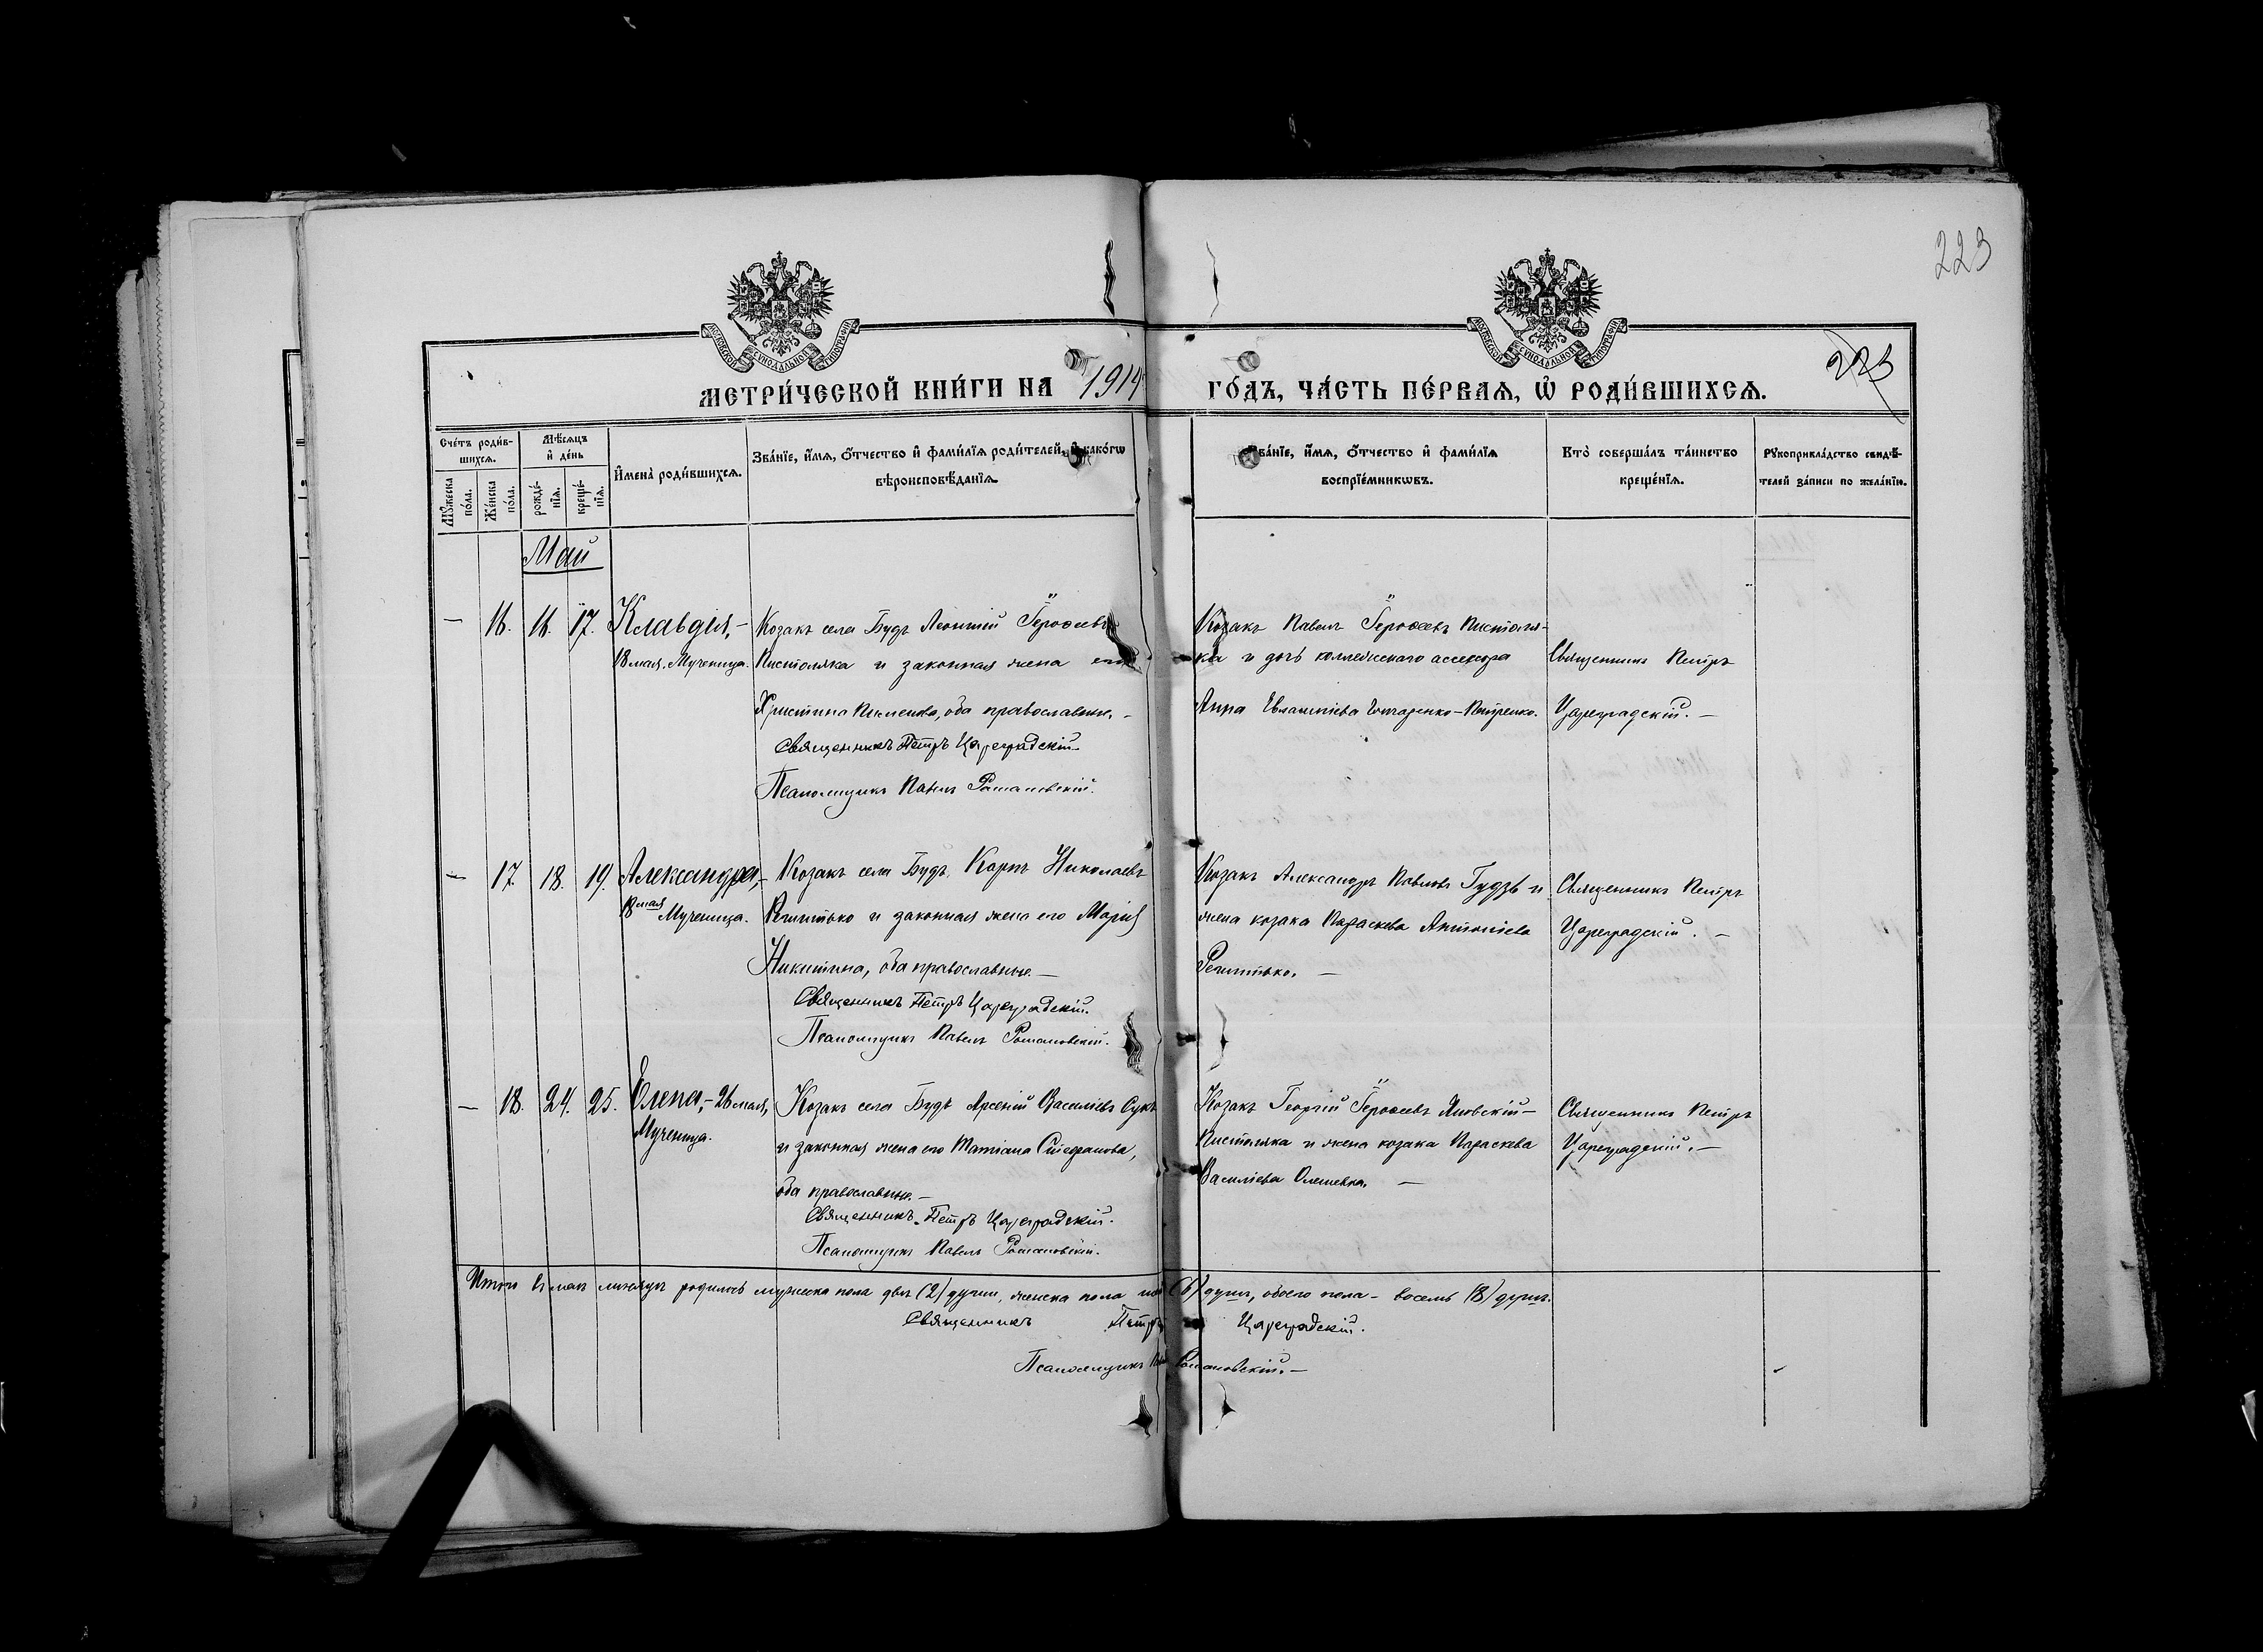 223
МОСКОВСКОЙ СѴНОДАЛЬНОЙ ТИПОГРАФІИ
МОСКОВСКОЙ СѴНОДАЛЬНОЙ ТИПОГРАФІИ
223
МЕТРИ́ЧЕСКОЙ КНИ́ГИ НА 1914 ГО́ДЪ, ЧА́СТЬ ПЕ́РВАѦ, Ѽ РОДИ́ВШИХСѦ.
Сче́тъ роди́в-
шихсѧ.
Мꙋ́жеска по́ла.
Же́нска по́ла.
Мѣ́сѧцъ
и҆ де́нь
рожде́-нїѧ.
креще́-нїѧ.
И҆мена̀ роди́вшихсѧ.
Зва́нїе, и҆́мѧ, ѻ҆́тчество и҆ фами́лїѧ роди́телей, и҆ како́гѡ
вѣроисповѣ́данїѧ.
Зва́нїе, и҆́мѧ, ѻ҆́тчество и҆ фами́лїѧ
воспрїе́мникѡвъ.
Кто̀ соверша́лъ та́инство
креще́нїѧ.
Рꙋкоприкла́дство свидѣ́-
телей за́писи по жела́нїю.
Май
— 16. 16. 17. Клавдія, —
18 мая. Мученица.
Козакъ села Будъ Леонтій Герофеевъ
Пистоляка и законная жена его
Христина, оба православные. —
Священникъ Петръ Цареградскій.
Псаломщикъ Павелъ Романовскій.
Козакъ Павелъ Герофеевъ Пистоля-
ка и дочь коллежскаго ассесора
Анна Евлампіева Петренко.
Священникъ Петръ
Цареградскій. —
— 17. 18. 19. Александра, —
18 мая Мученица.
Козакъ села Будъ Карпъ Николаевъ
Решитько и законная жена его Марія
Никитина, оба православные. —
Священникъ Петръ Цареградскій.
Псаломщикъ Павелъ Романовскій.
Козакъ Александръ Павловъ Гудзь и
жена козака Параскева Антоніева
Решитько. —
Священникъ Петръ
Цареградскій. —
— 18. 24. 25. Елена, — 26 мая,
Мученица.
Козакъ села Будъ Арсеній Василіевъ Сукъ
и законная жена его Татіана Стефанова,
оба православные. —
Священникъ Петръ Цареградскій.
Псаломщикъ Павелъ Романовскій.
Козакъ Георгій Герофеевъ Яновскій —
Пистоляка и жена козака Параскева
Василіева Олешевка. —
Священникъ Петръ
Цареградскій. —
Итого въ маѣ мѣсяцѣ родилось мужеска пола двѣ (2) души, женска пола (6) душъ, обоего пола — восемь (8) душъ.
Священникъ Петръ Цареградскій.
Псаломщикъ Романовскій. —